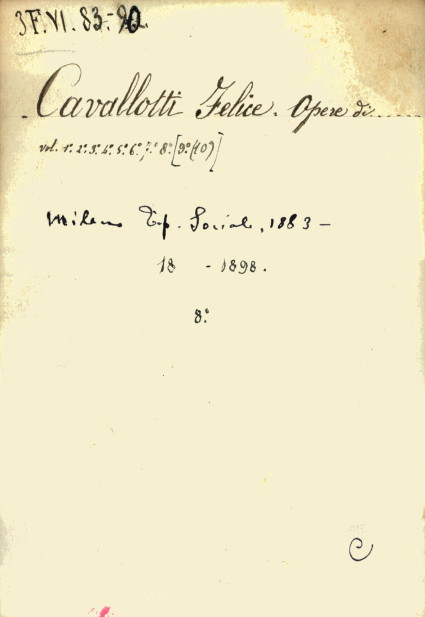 3F.VI.83-90
Cavallotti Felice. Opere di......
vol. 1º. 2º. 3º. 4º. 5º. 6º. 7º. 8º. [9º. (10)]
Milano Tip. Sociale, 1883 -
18 - 1898.
8º
C